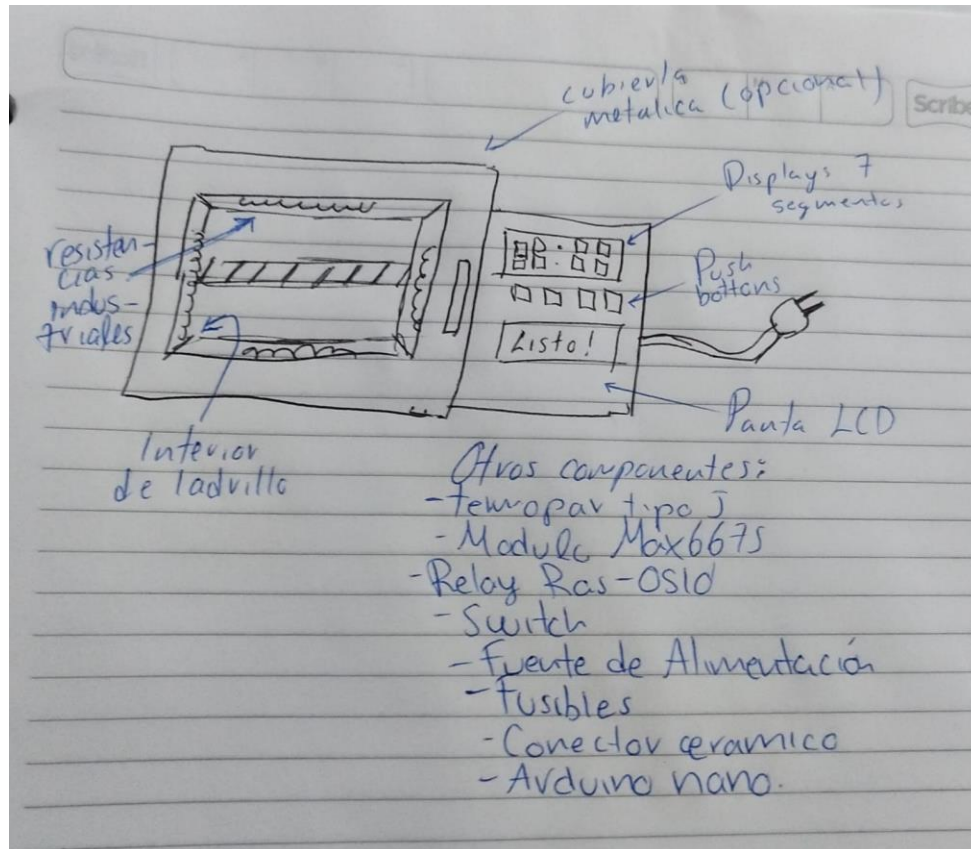 Scribe
cubierta
metalica (opcional)
Displays 7
segmentos
resisten-
cias
indus-
triales
Push
bottons
Listo!
Panta LCD
Interior
de ladrillo
Otros componentes:
- Temopar tipo J
- Modulo Max6675
- Relay Ras-0510
- Switch
- Fuente de Alimentación
- Fusibles
- Conector ceramico
- Arduino nano.